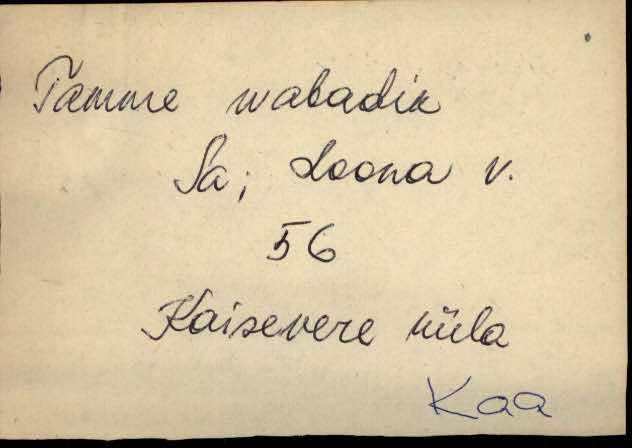 Tamme wabadik
Sa; Loona v.
56
Kaisevere küla
Kaa